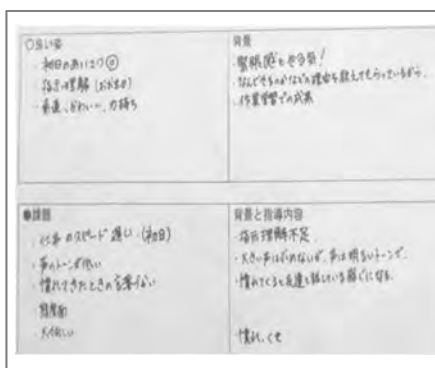 ○良い姿
・初日のあいさつ
・指示の理解
・素直、かわいい、力持ち
背景
・緊張感もせ合気!
・なんでそうのかなどの理由を教えてもらっているから。
・作業学習での成果
●課題
・仕事のスピード遅い(初日)
・声のトーンが低い
・慣れてきたときの言葉づかい
態度面
背景と指導内容
・指示理解不足
・大きい声は出せないが、声は明るいトーンで。
・慣れてくると友達と話している感じになる
・慣れ、くせ